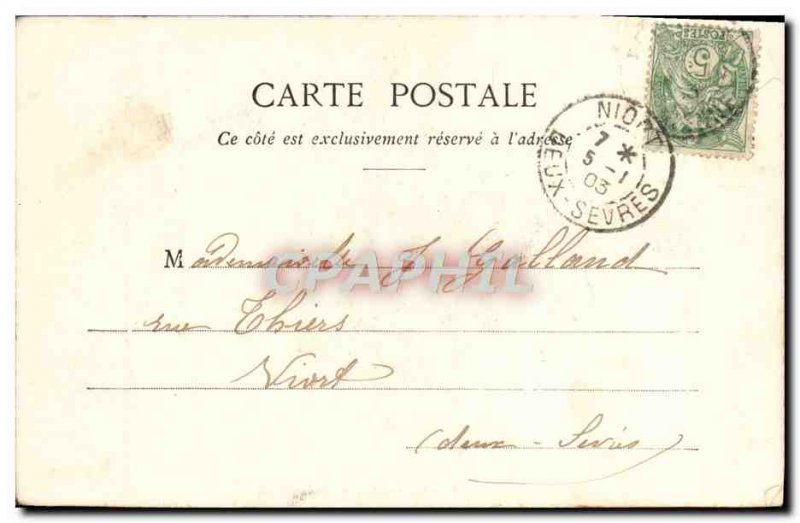 CARTE POSTALE
Ce côté est exclusivement réservé à l'adresse
POSTES
5
NIORT
7 *
5 - 1
03
DEUX-SEVRES
Mademoiselle J Galland
CPAPHIL
rue Thiers
Niort
(deux - Sevres)